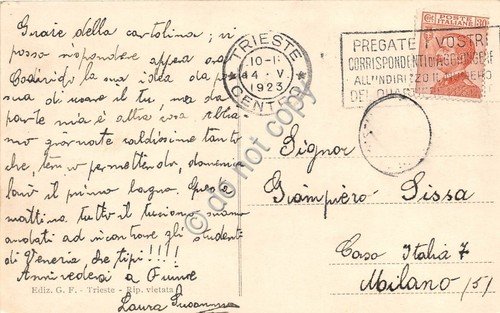 Grazie della cartolina; vi
posso rispondere appena ora
Condivido la sua idea da po
sua di usare il tu, ma da
parte mia è altra cosa abbia
mo giornate caldissime tanto
che, tempo permettendo, domenica
farò il primo bagno. Questa
mattina tutto il siamo
andati ad incontrare gli studenti
di Venezia che tipi!!!!
Arrivederci a Fiume
Ediz. G. F. - Trieste - Rip. vietata
Laura
TRIESTE
10-11
4 · V.
1923
CENTRO
POSTE ITALIANE
30
PREGATE I VOSTRI
CORRISPONDENTI D'AGGIUNGERE
ALL'INDIRIZZO IL NUMERO
DEL QUARTIERE
Signor
Giampiero Sissa
Casa Italia 7
Milano (5)
do not copy